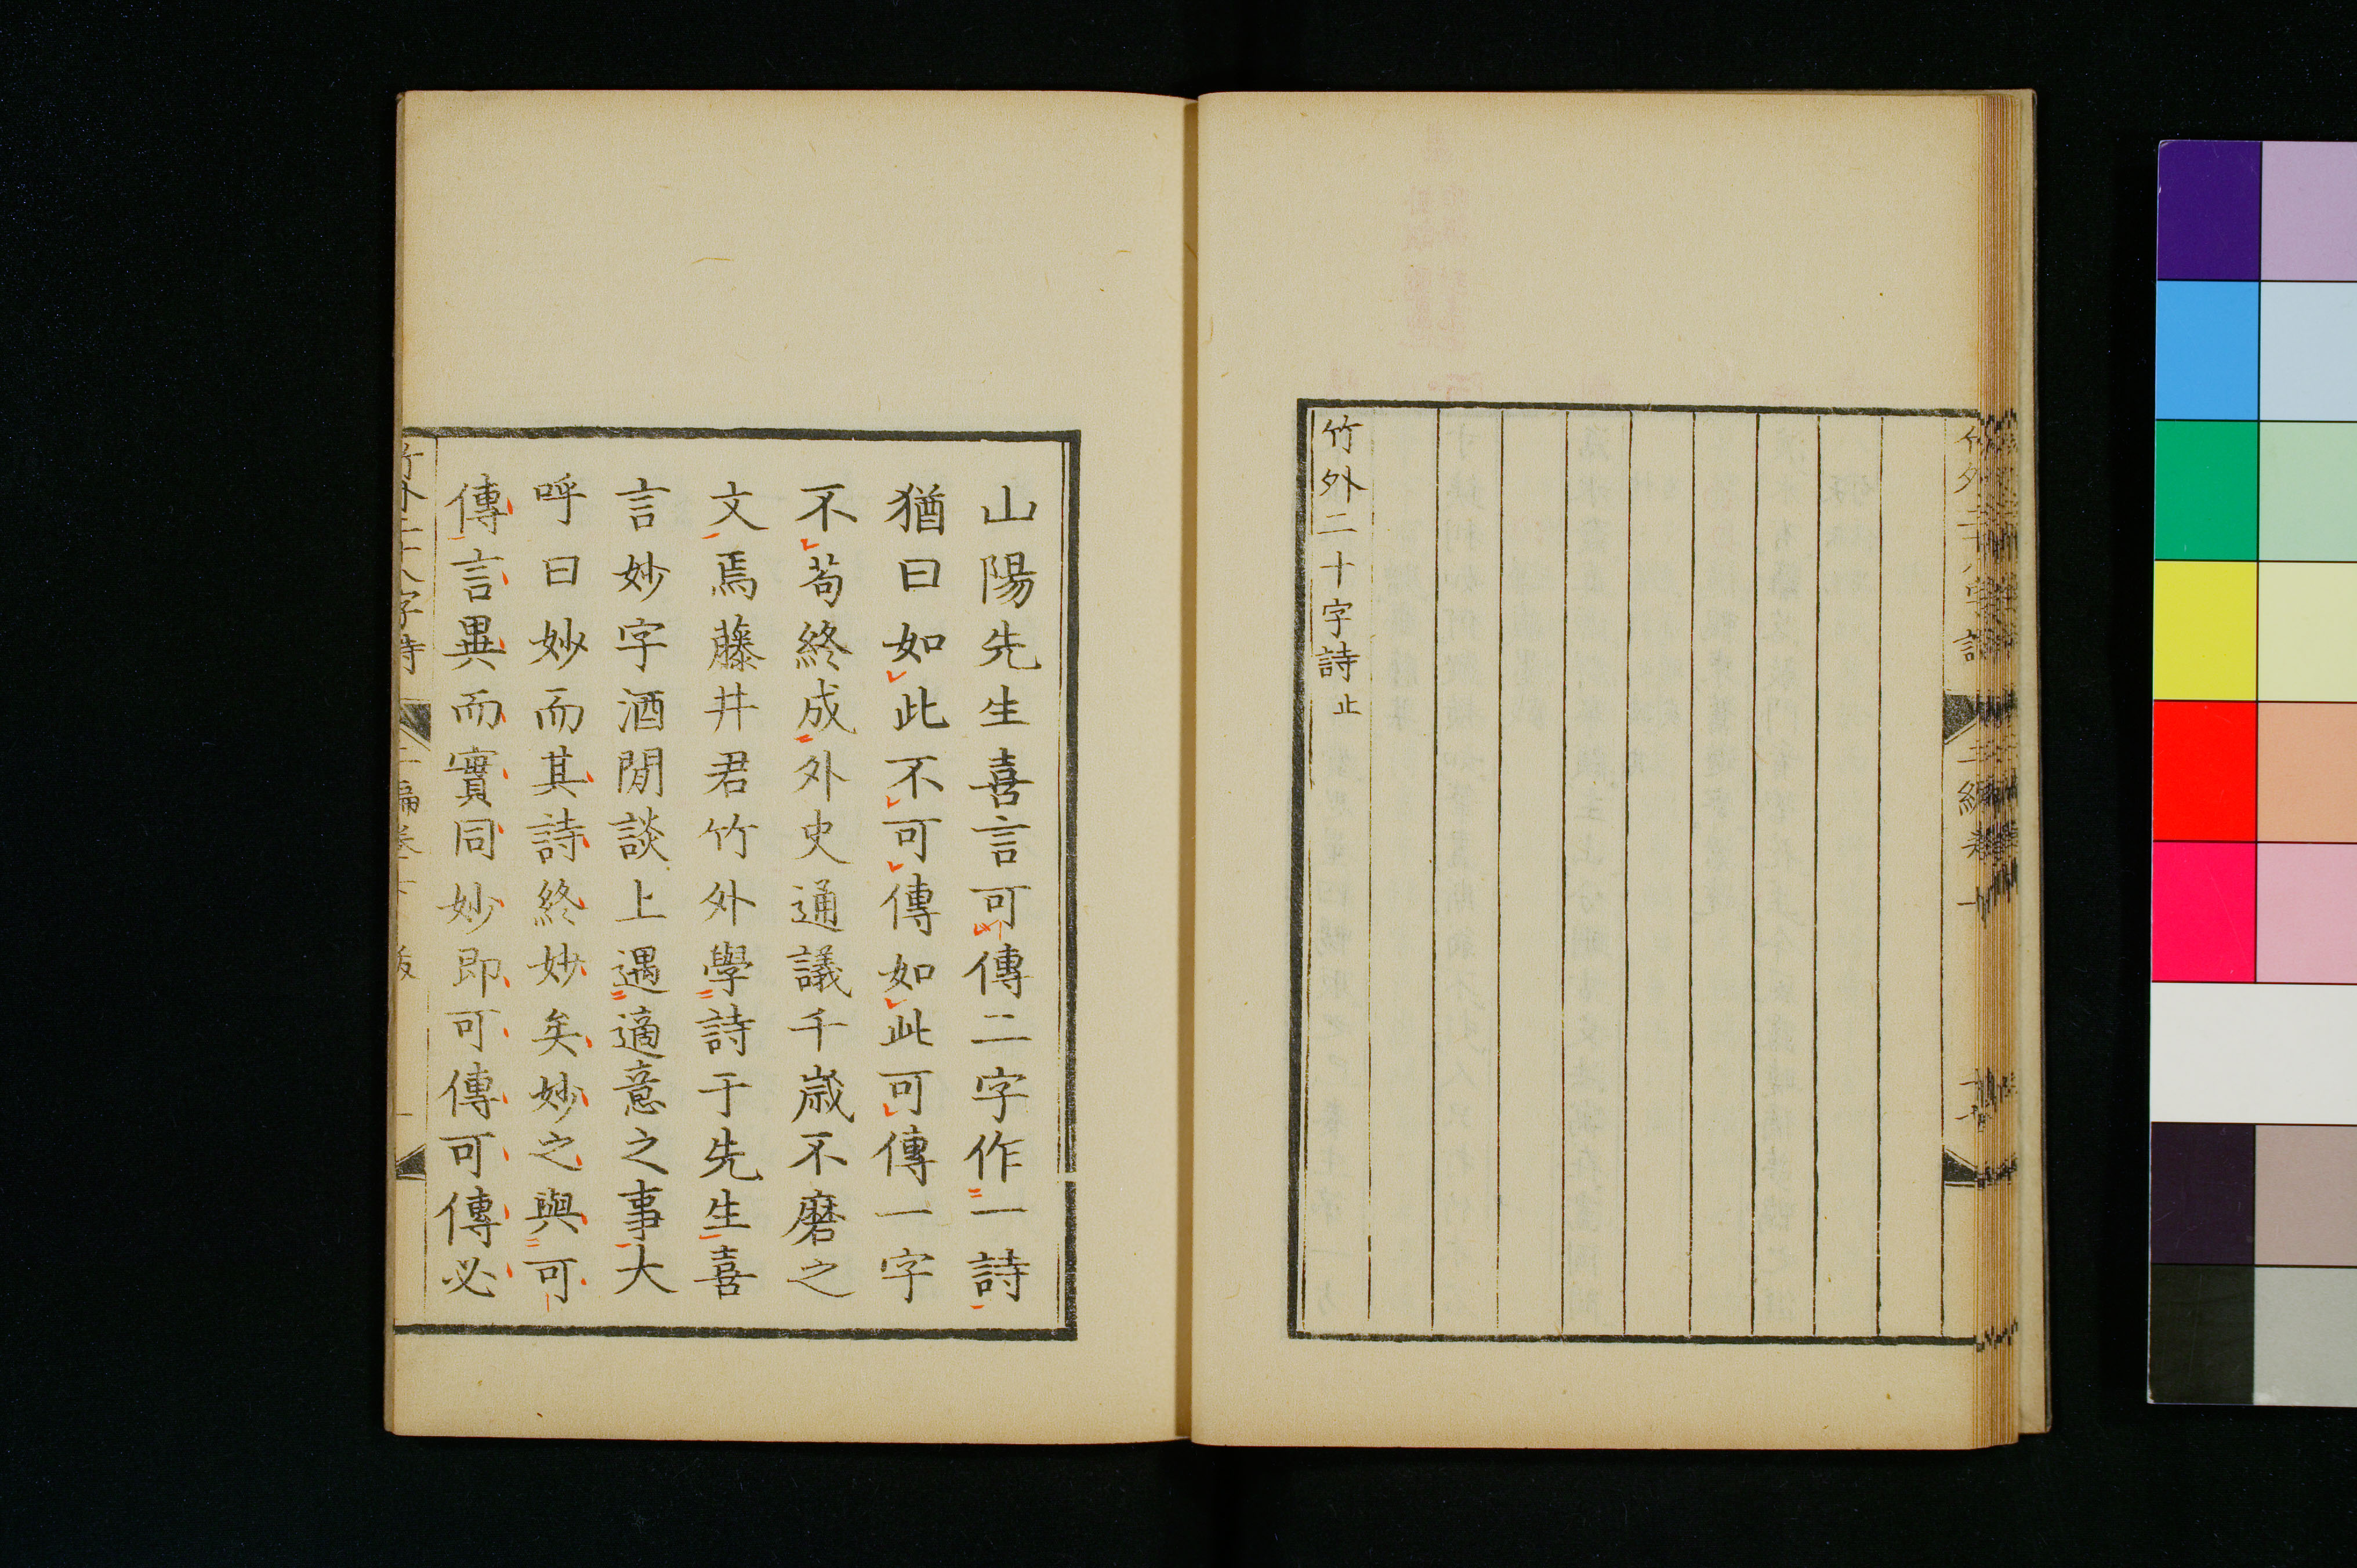 竹外二十字詩止
山陽先生喜言可傳二字作一詩
猶曰如此不可傳如此可傳一字
不苟終成外史通議千歲不磨之
文焉藤井君竹外學詩于先生喜
言妙字酒閒談上遇適意之事大
呼曰妙而其詩終妙矣妙之與可
傳言異而實同妙即可傳可傳必